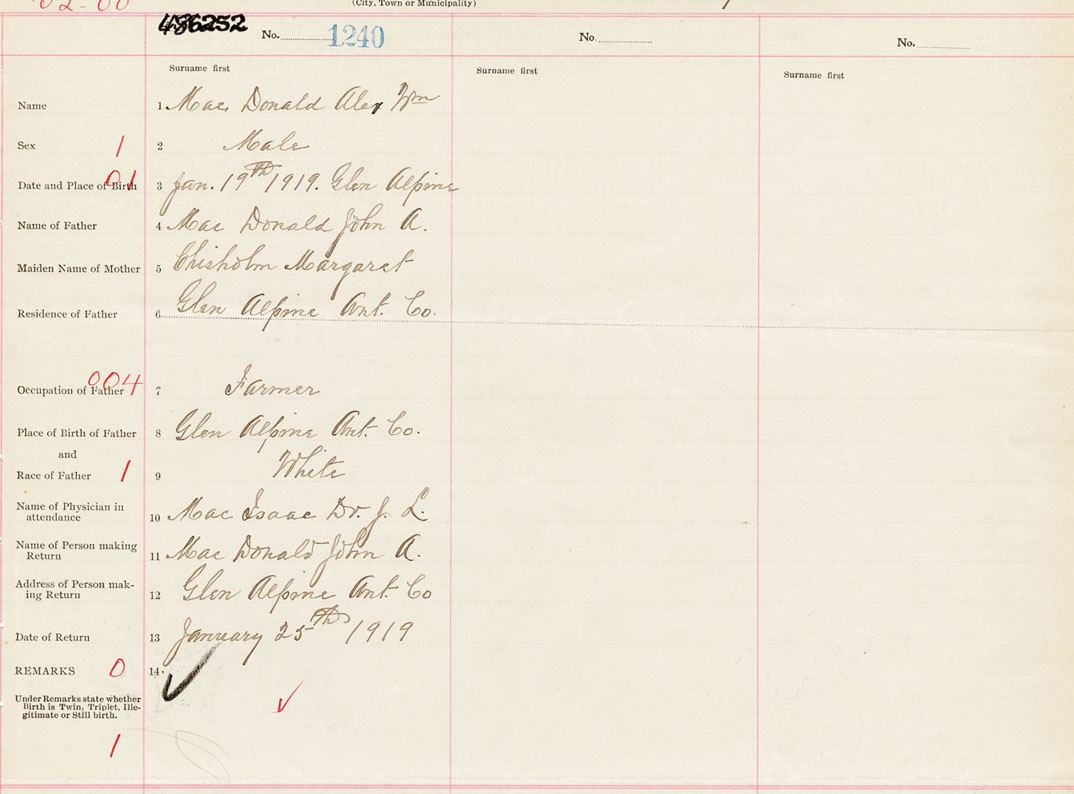 02-00
(City, Town or Municipality)
486252 No. 1240 No. No.
Surname first Surname first Surname first
Name 1 Mac Donald Alex Wm
Sex 1 2 Male
Date and Place of Birth 01 3 Jan. 19th 1919. Glen Alpine
Name of Father 4 Mac Donald John A.
Maiden Name of Mother 5 Chisholm Margaret
Residence of Father 6 Glen Alpine Ant. Co.
Occupation of Father 004 7 Farmer
Place of Birth of Father 8 Glen Alpine Ant. Co.
and
Race of Father 1 9 White
Name of Physician in
attendance 10 Mac Isaac Dr. J. L.
Name of Person making
Return 11 Mac Donald John A.
Address of Person mak-
ing Return 12 Glen Alpine Ant. Co
Date of Return 13 January 25th 1919
REMARKS 0 14
Under Remarks state whether
Birth is Twin, Triplet, Ille-
gitimate or Still birth.
1